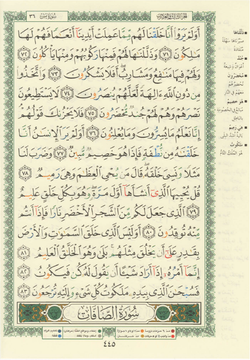 أَوَلَمْ يَرَوْا۟ أَنَّا خَلَقْنَا لَهُم مِّمَّا عَمِلَتْ أَيْدِينَآ أَنْعَٰمًا فَهُمْ لَهَا
مَٰلِكُونَ ﴿٧١﴾ وَذَلَّلْنَٰهَا لَهُمْ فَمِنْهَا رَكُوبُهُمْ وَمِنْهَا يَأْكُلُونَ ﴿٧٢﴾
وَلَهُمْ فِيهَا مَنَٰفِعُ وَمَشَارِبُ أَفَلَا يَشْكُرُونَ ﴿٧٣﴾ وَٱتَّخَذُوا۟
مِن دُونِ ٱللَّهِ ءَالِهَةً لَّعَلَّهُمْ يُنصَرُونَ ﴿٧٤﴾ لَا يَسْتَطِيعُونَ
نَصْرَهُمْ وَهُمْ لَهُمْ جُندٌ مُّحْضَرُونَ ﴿٧٥﴾ فَلَا يَحْزُنكَ قَوْلُهُمْ
إِنَّا نَعْلَمُ مَا يُسِرُّونَ وَمَا يُعْلِنُونَ ﴿٧٦﴾ أَوَلَمْ يَرَ ٱلْإِنسَٰنُ أَنَّا
خَلَقْنَٰهُ مِن نُّطْفَةٍ فَإِذَا هُوَ خَصِيمٌ مُّبِينٌ ﴿٧٧﴾ وَضَرَبَ لَنَا
مَثَلًا وَنَسِىَ خَلْقَهُۥ قَالَ مَن يُحْىِ ٱلْعِظَٰمَ وَهِىَ رَمِيمٌ ﴿٧٨﴾
قُلْ يُحْيِيهَا ٱلَّذِىٓ أَنشَأَهَآ أَوَّلَ مَرَّةٍ وَهُوَ بِكُلِّ خَلْقٍ عَلِيمٌ
﴿٧٩﴾ ٱلَّذِى جَعَلَ لَكُم مِّنَ ٱلشَّجَرِ ٱلْأَخْضَرِ نَارًا فَإِذَآ أَنتُم
مِّنْهُ تُوقِدُونَ ﴿٨٠﴾ أَوَلَيْسَ ٱلَّذِى خَلَقَ ٱلسَّمَٰوَٰتِ وَٱلْأَرْضَ
بِقَٰدِرٍ عَلَىٰٓ أَن يَخْلُقَ مِثْلَهُم بَلَىٰ وَهُوَ ٱلْخَلَّٰقُ ٱلْعَلِيمُ ﴿٨١﴾
إِنَّمَآ أَمْرُهُۥٓ إِذَآ أَرَادَ شَيْـًٔا أَن يَقُولَ لَهُۥ كُن فَيَكُونُ ﴿٨٢﴾
فَسُبْحَٰنَ ٱلَّذِى بِيَدِهِۦ مَلَكُوتُ كُلِّ شَىْءٍ وَإِلَيْهِ تُرْجَعُونَ ﴿٨٣﴾
سُورَةُ الصَّافَّاتِ
٤٤٥